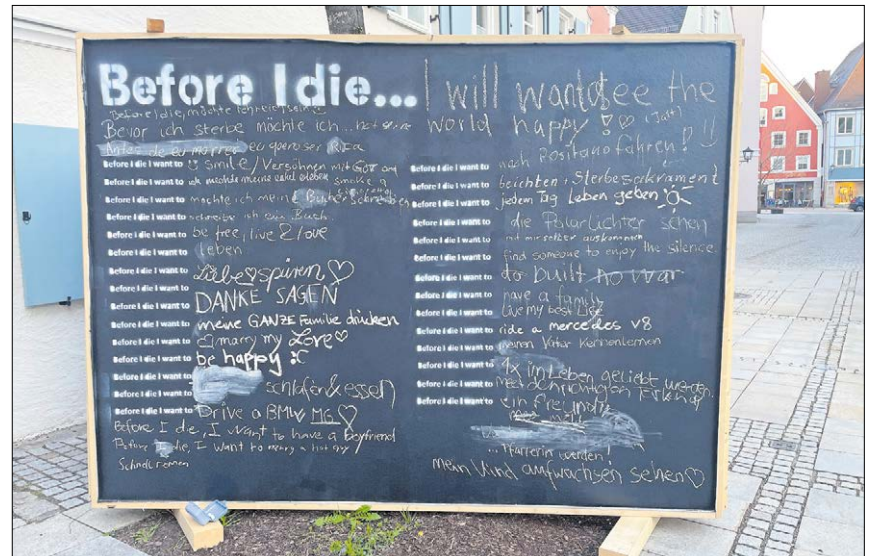 Before I die... I will want see the
world happy!
Bevor ich sterbe möchte ich...
Before I die I want to smile / Versöhnen mit Gott
Before I die I want to
Before I die I want to möchte ich meine Bücher schreiben
Before I die I want to schreibe ich ein Buch
Before I die I want to be free, live & love
Before I die I want to leben
Before I die I want to Liebe spüren
Before I die I want to DANKE SAGEN
Before I die I want to meine GANZE Familie drücken
Before I die I want to marry my Love
Before I die I want to be happy :)
Before I die I want to
Before I die I want to schlafen & essen
Before I die I want to Drive a BMW MG
Before I die, I want to have a boyfriend
Before I die, I want to marry a hot guy
nach Positano fahren!
Before I die I want to
Before I die I want to beichten, Sterbesakrament
Before I die I want to jedem Tag Leben geben
Before I die I want to die Polarlichter sehen
Before I die I want to mit mir selber auskommen
Before I die I want to find someone to enjoy the silence
Before I die I want to built no war
Before I die I want to have a family
Before I die I want to live my best life
Before I die I want to ride a mercedes V8
Before I die I want to meinen Vater Kennenlernen
Before I die I want to
Before I die I want to 1x im Leben geliebt werden
Before I die I want to
Before I die I want to ein Freund
... Pfarrerin werden!
mein Kind aufwachsen sehen